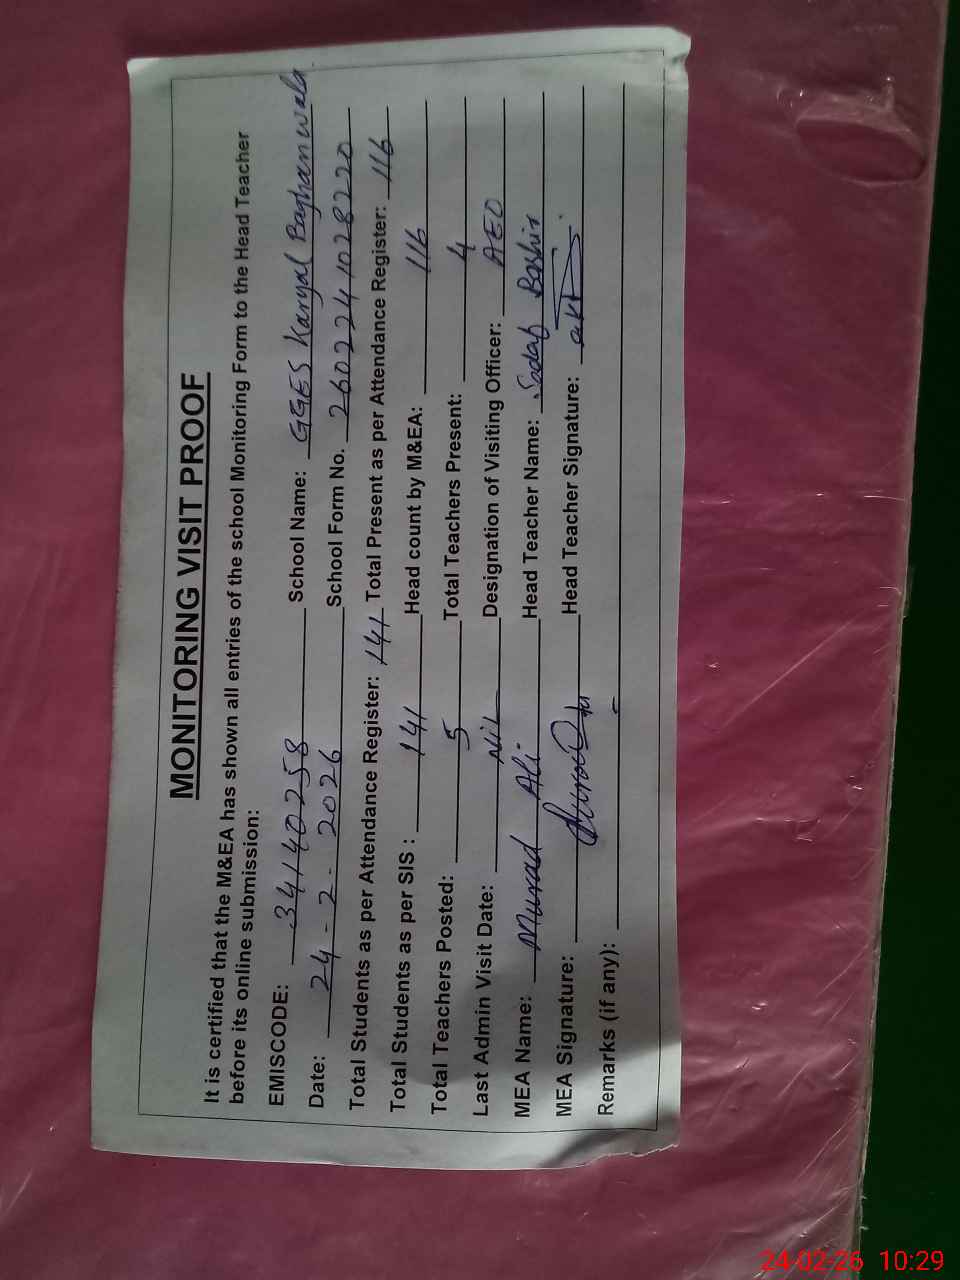 MONITORING VISIT PROOF
It is certified that the M&EA has shown all entries of the school Monitoring Form to the Head Teacher
before its online submission:
EMISCODE: 34140258 School Name: GGES Karyal Baghanwala
Date: 24-2-2026 School Form No. 2602241028220
Total Students as per Attendance Register: 141 Total Present as per Attendance Register: 116
Total Students as per SIS : 141 Head count by M&EA: 116
Total Teachers Posted: 5 Total Teachers Present: 4
Last Admin Visit Date: Nil Designation of Visiting Officer: AEO
MEA Name: Murad Ali Head Teacher Name: Sadaf Bashir
MEA Signature: Head Teacher Signature:
Remarks (if any): -
24-02-26 10:29